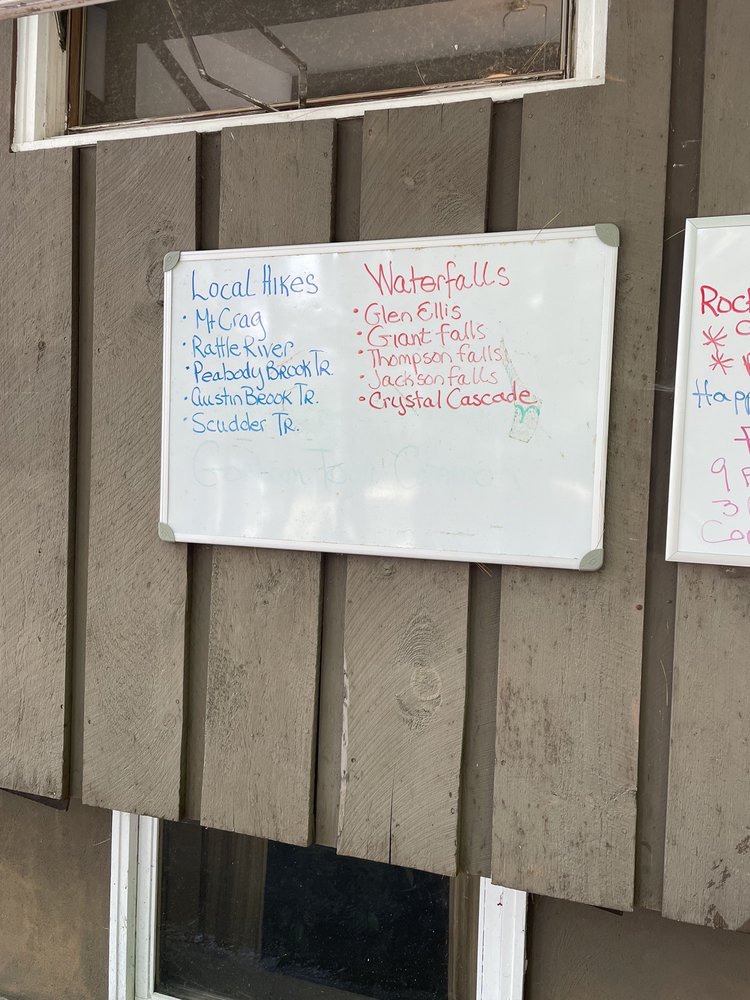 Local Hikes
• Mt Crag
• Rattle River
• Peabody Brook Tr.
• Austin Brook Tr.
• Scudder Tr.
Waterfalls
• Glen Ellis
• Giant falls
• Thompson falls
• Jackson falls
• Crystal Cascade
Happ
9
3